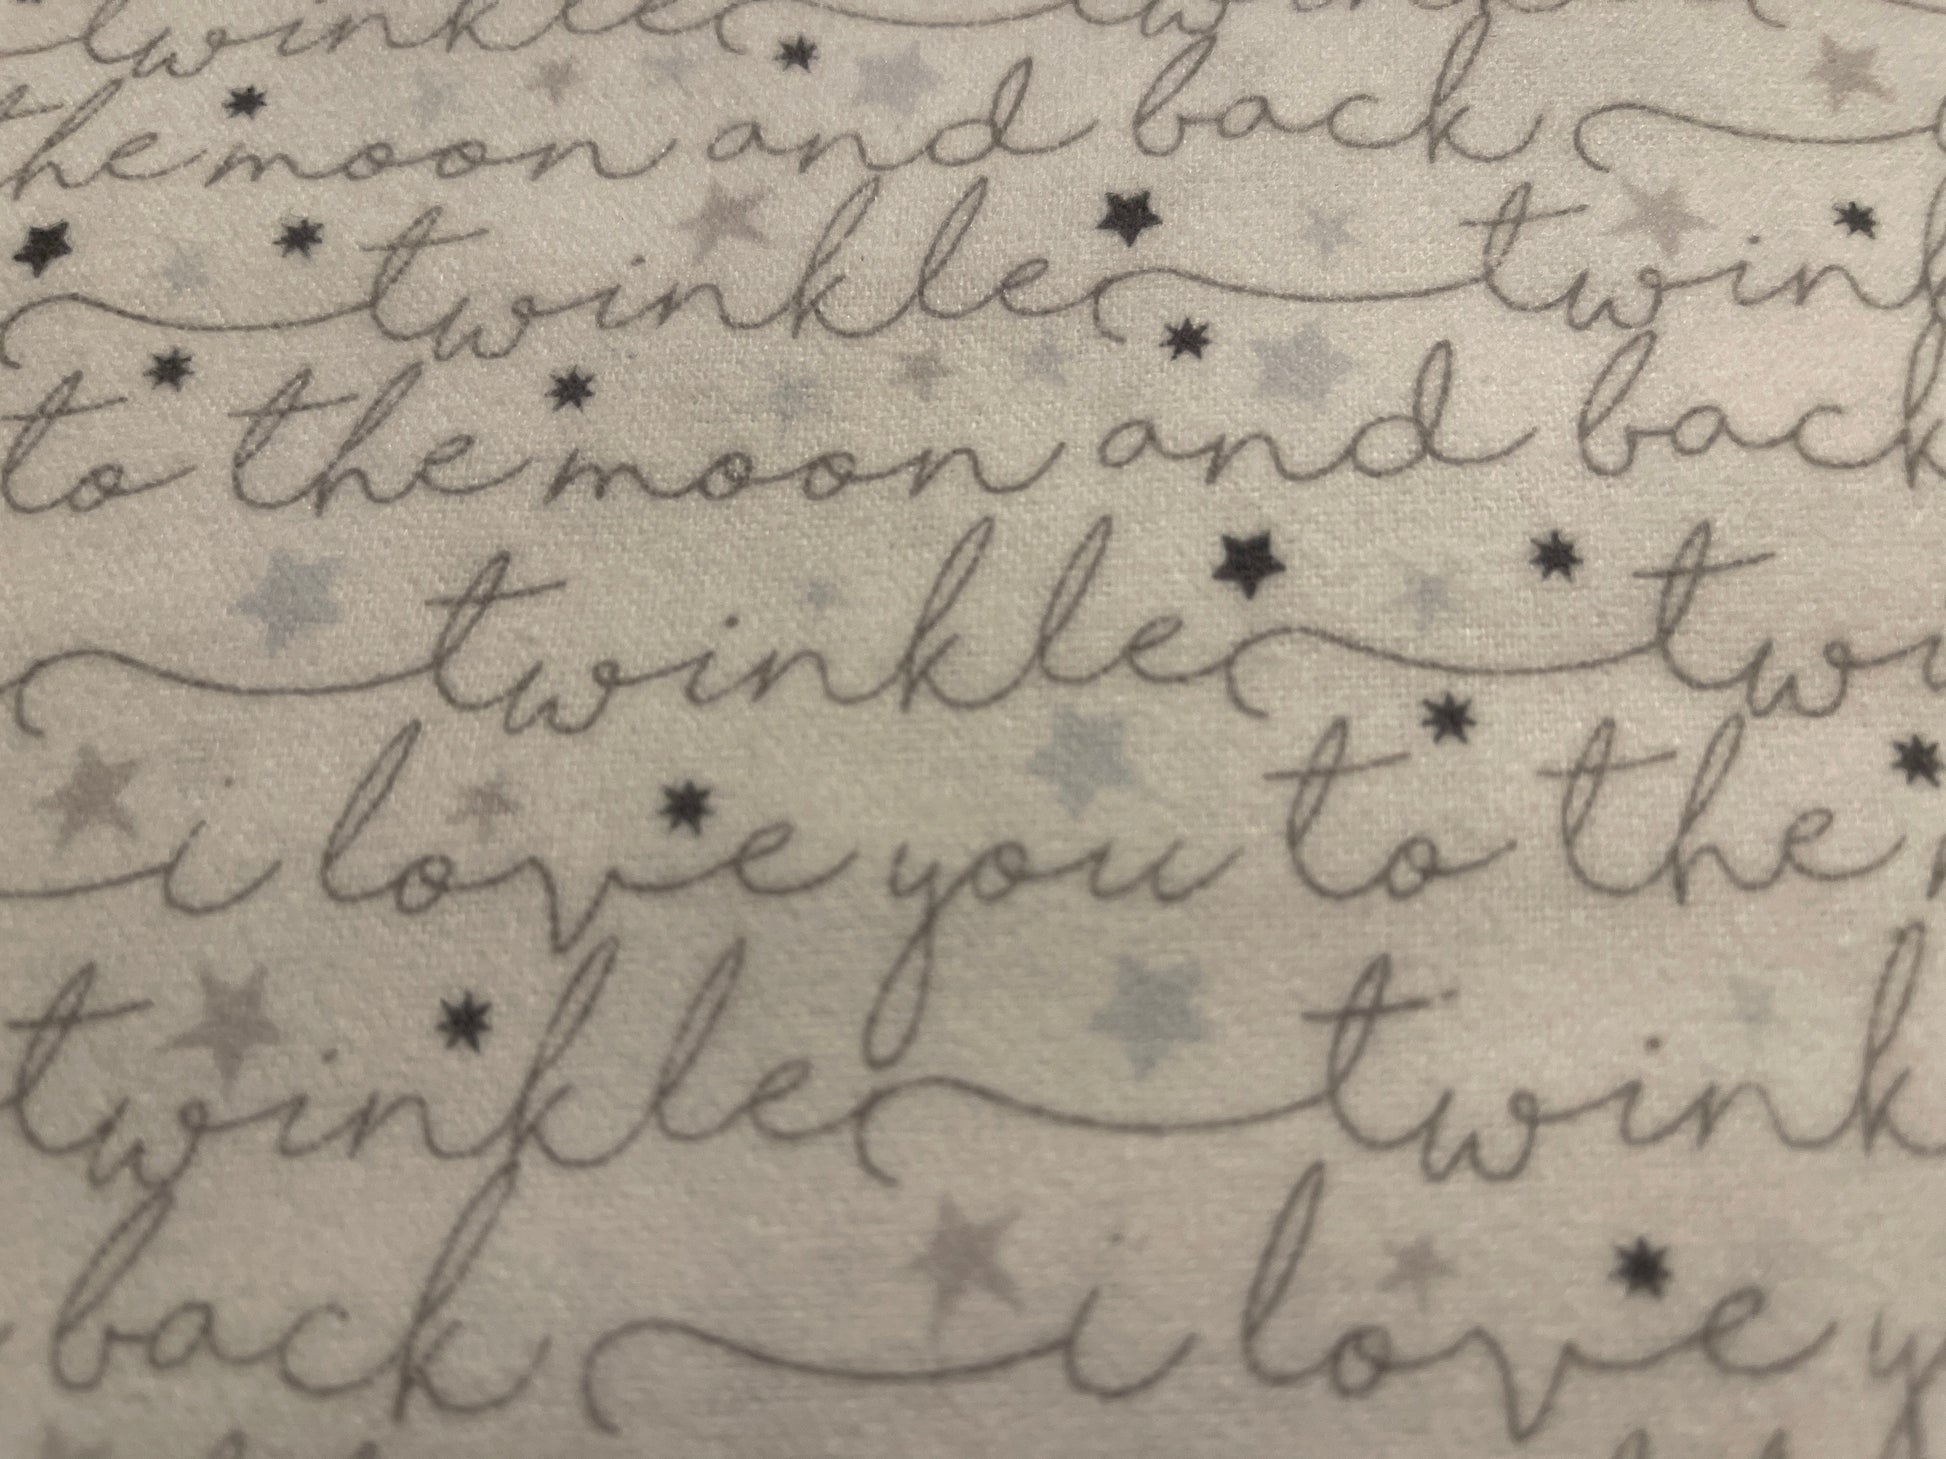 twinkle
the moon and back
twinkle twinkl
to the moon and back
twinkle twi
i love you to the
twinkle twink
back i love y